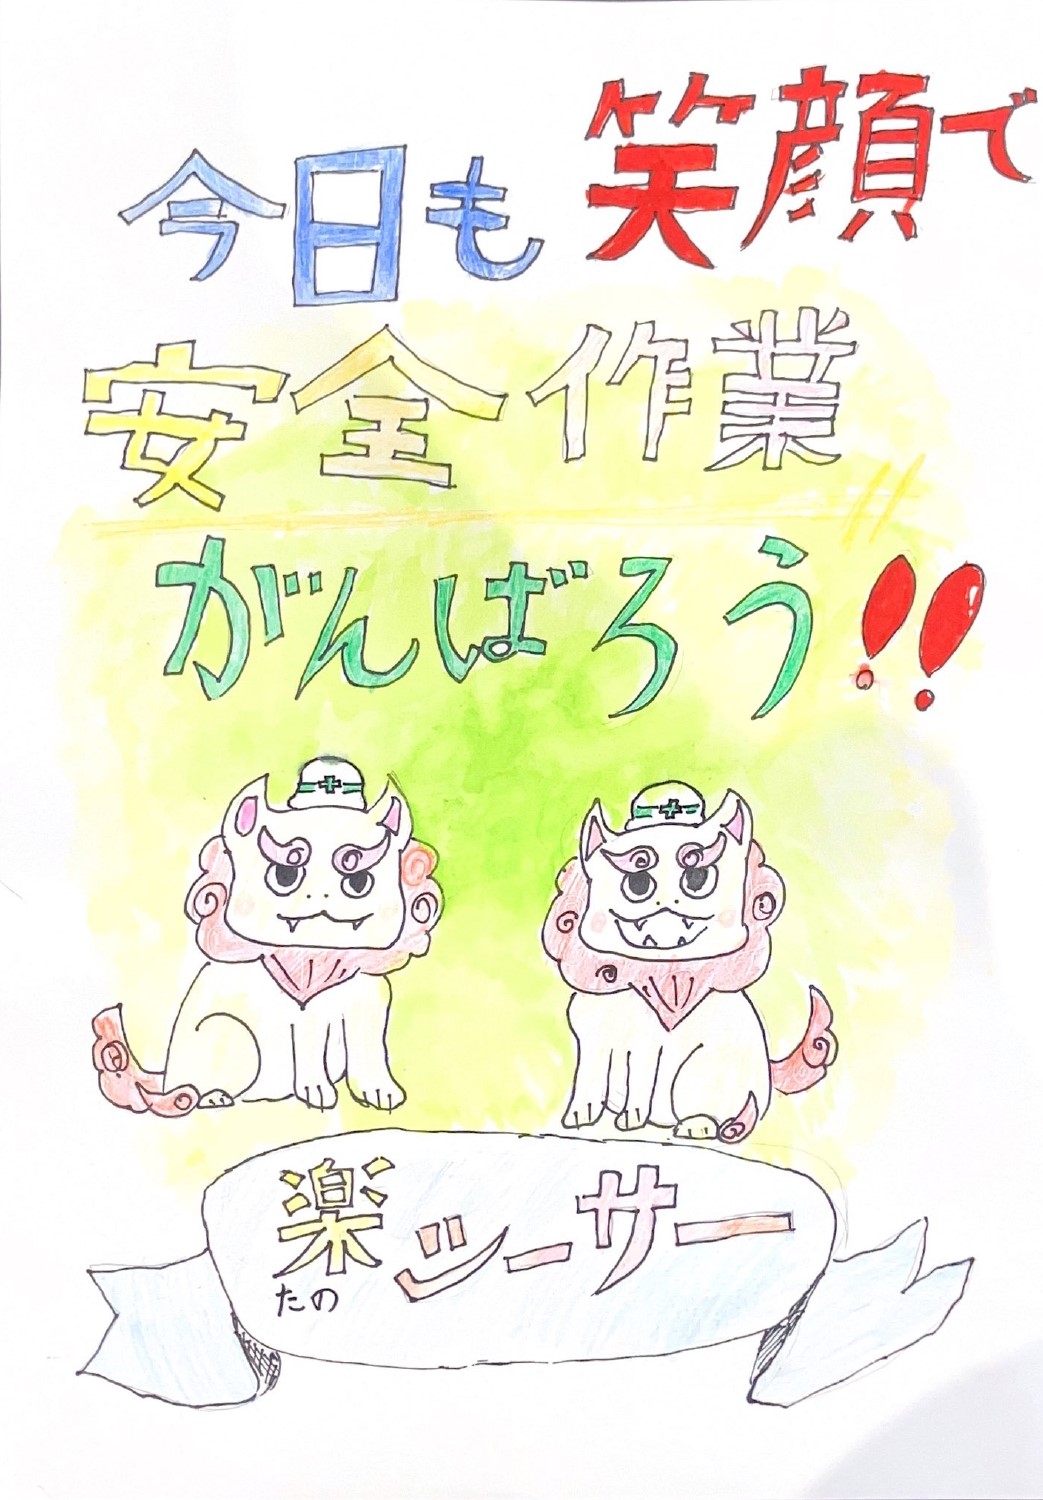 今日も笑顔で
安全作業
がんばろう!!
楽シーサー
たの